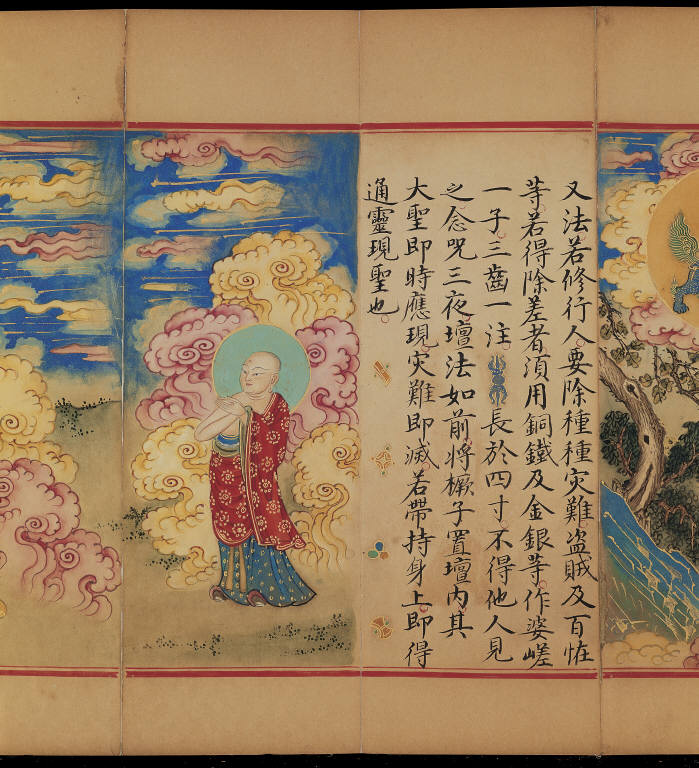 又法若修行人要除種種灾難盗賊及百恠
等若得除差者湏用銅鐵及金銀等作婆嵯
一子三齒一注長於四寸不得他人見
之念咒三夜壇法如前将橛子置壇内其
大聖即時應現灾難即滅若帶持身上即得
通靈現聖也